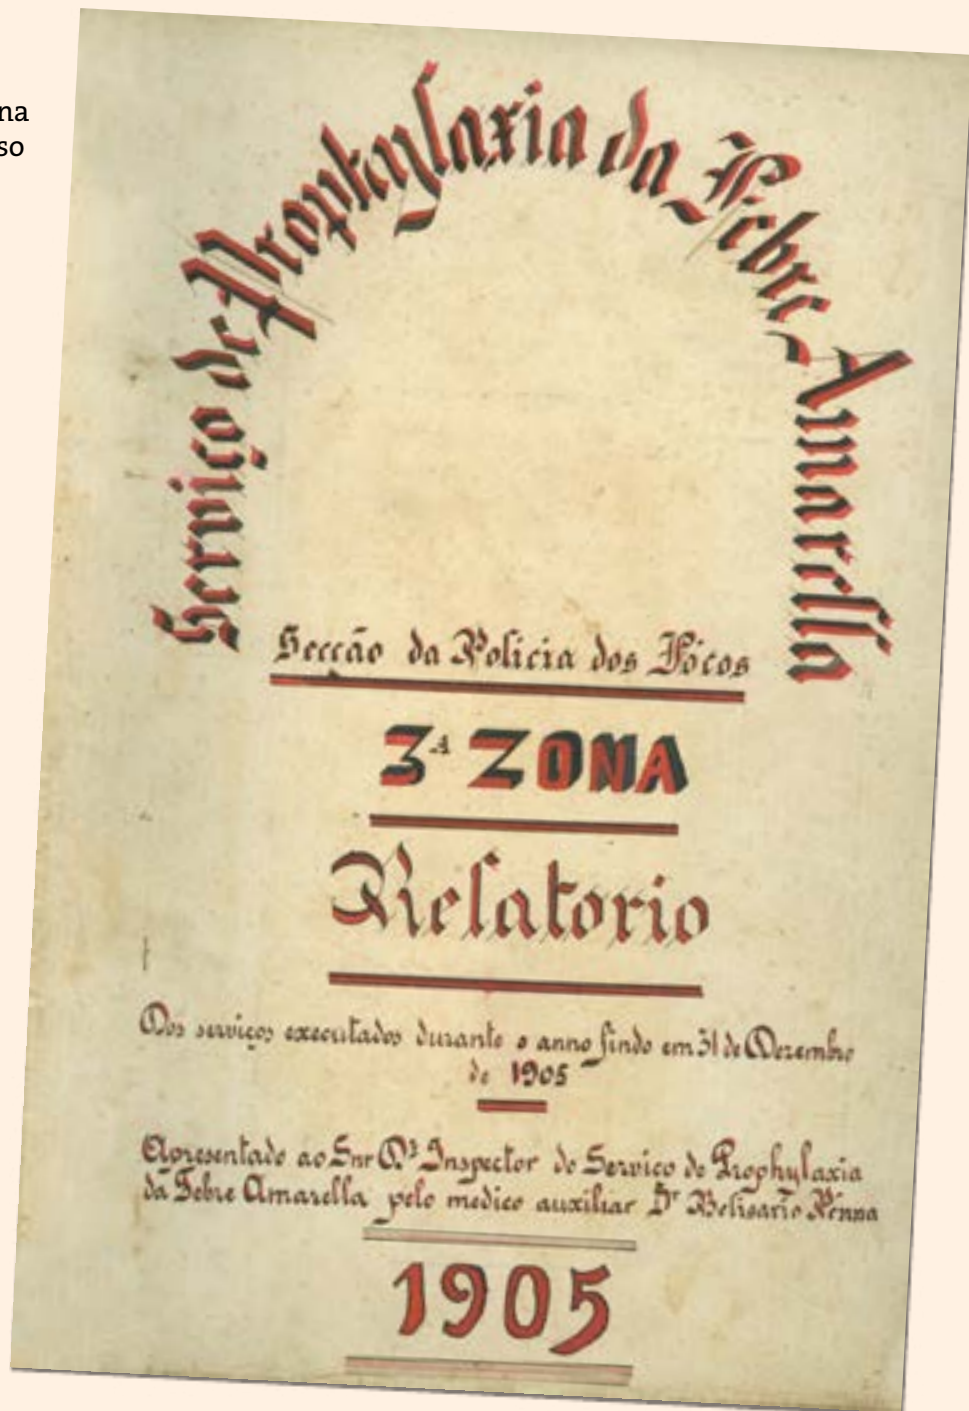 na
so
Serviço de Prophylaxia da Febre Amarella
Secção da Policia dos Fócos
3ª ZONA
Relatorio
Dos serviços executados durante o anno findo em 31 de Dezembro
de 1905
Apresentado ao Snr Dr Inspector do Serviço de Prophylaxia
da Febre Amarella pelo medico auxiliar Dr Belisario Penna
1905